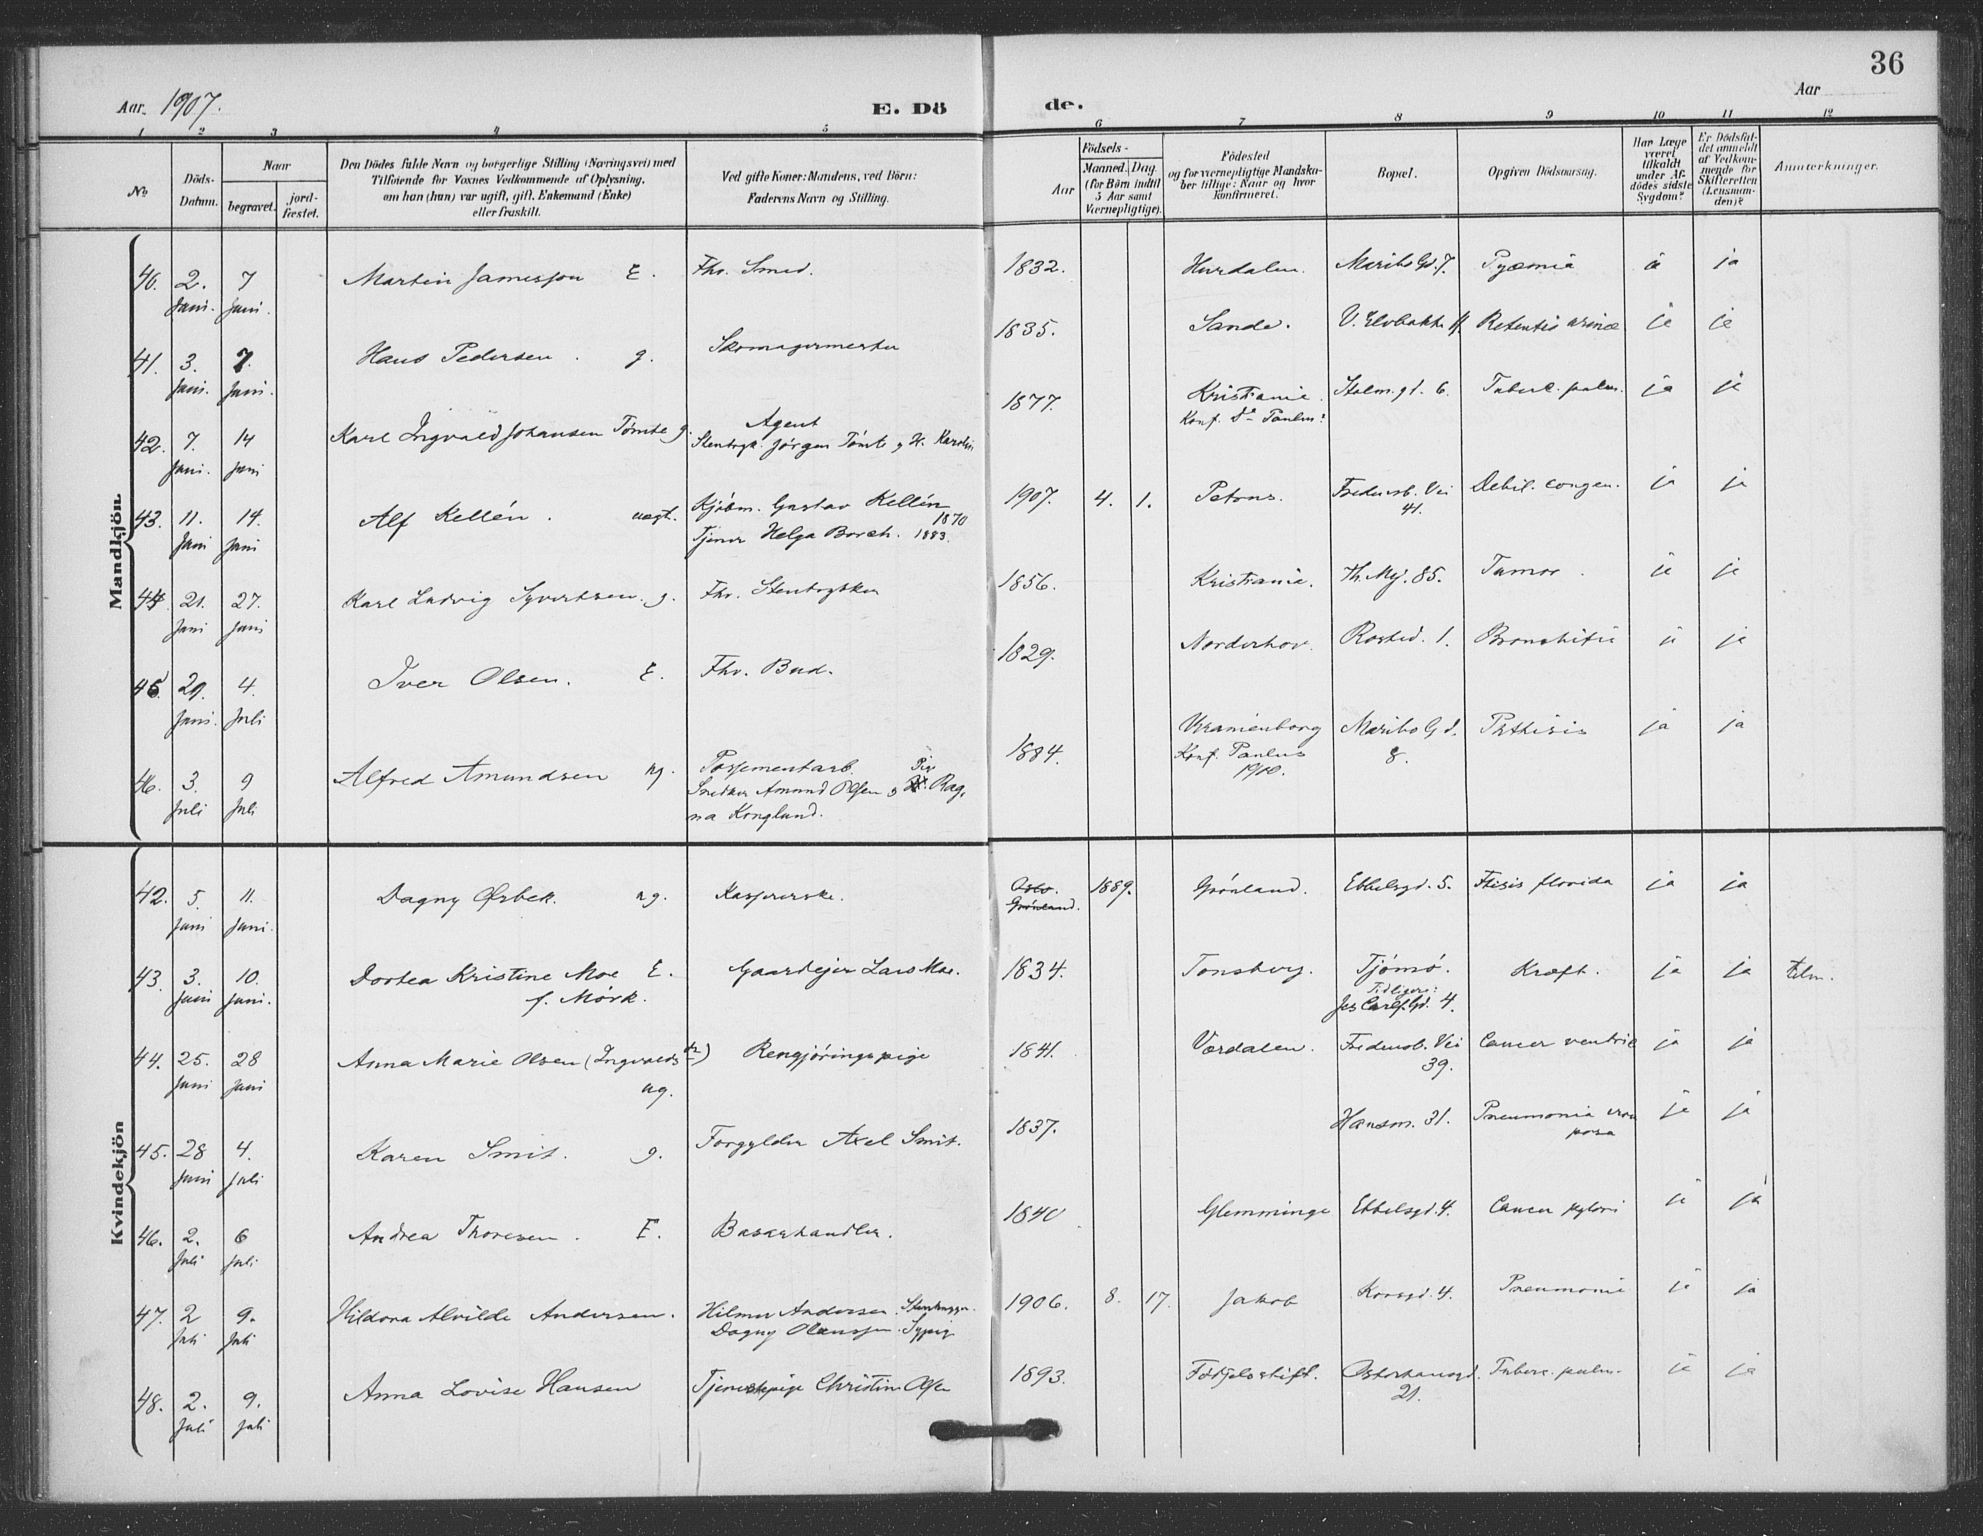 36
Aar 1907.
E. Dö
de.
Aar
1 2 3 4 5 6 7 8 9 10 11 12
No
Döds-Datum.
Naar
begravet.
jord-fæstet.
Den Dödes fulde Navn og borgerlige Stilling (Næringsvei) med
Tilföiende for Voxnes Vedkommende af Oplysning,
om han (hun) var ugift, gift, Enkemand (Enke)
eller fraskilt.
Ved gifte Koner: Mandens, ved Börn:
Faderens Navn og Stilling.
Födsels-
Aar
Maaned. Dag.
(for Börn indtil
5 Aar samt
Værnepligtige).
Födested
og for værnepligtige Mandska-
ber tillige: Naar og hvor
konfirmeret.
Bopæl.
Opgiven Dödsaarsag.
Har Læge
været
tilkaldt
under Af-
dödes sidste
Sygdom?
Er Dödsfal-
det anmeldt
af Vedkom-
mende for
Skifteretten
(Lensman-
den)?
Anmærkninger.
Mandkjön
40. 2. Juni. 7 Juni. Martin Jamesson E. Fhv. Smed. 1832. Hurdalen. Maribo Gd. 7. Pyæmia ja ja
41. 3. Juni. 7. Juni. Hans Pedersen . g. Skomagermester 1835. Sande. V. Elvbakke Retentio urinæ ja ja
42. 7. Juni. 14 Juni Karl Ingvald Johansen Tømte g. Agent
Stenhugk. Jørgen Tømte og H. Karolin 1877. Kristiania. Konf. Paulus: Holm. gd. 6. Tuberk. pulm. ja ja
43. 11. Juni 14. Juni Alf Kellén . uegt. Kjøbm. Gustav Kellén 1870
Tjener Helga Borch. 1883. 1907. 4. 1. Petrus. Fredensb. Vei 41. Debil. congen. ja ja
44. 21. Juni 27. Juni Karl Ludvig Syvertsen. g. Fhv. Stenbryder 1856. Kristiania. Th. Mej. 85. Tumor . ja ja
45. 29. Juni. 4. Juli Iver Olsen. E. Fhv. Bud. 1829. Norderhov. Rosted. 1. Bronchitis ja ja
46. 3. Juli 9 Juli Alfred Amundsen ug. Possementarb.
Snedker Amund Olsen og Pige Rag-
na Konglund. 1884. Uranienborg
Konf. Paulus
1900. Maribo Gd. 8. Phthisis ja ja
Kvindekjön
42. 5. Juni 11. Juni. Dagny Ørbek. ug. Kassererske. Oslo. Grønland. 1889. Grønland. Ebbelsgd. 5. Ftisis florida ja ja
43. 3. Juni 10. Juni. Dortea Kristine Moe E.
f. Mørk. Gaardejer Lars Moe. 1834. Tønsberg. Tjømø.
Tidligere:
Jes Carls. Gd. 4. Kræft. ja ja
44. 25. Juni 28 Juni Anna Marie Olsen (Ingvaldsdr)
ug. Rengjøringspige 1841. Værdalen. Fredensb. Vei 39. Cancer ventric ja ja
45. 28 Juni 4. Juli Karen Smit. g. Forgylder Axel Smit. 1837. Hansm. 31. Pneumonia crou
posa ja ja
46. 2. Juli 6 Juli Andrea Thoresen . E. Basarhandler. 1840 Glemminge Ebbelsgd. 4. Cancer pylori ja ja
47. 2 Juli 9. Juli Hildora Alvilde Andersen. Hilmer Andersen. Stenhugger.
Dagny Olaussen. Sypig 1906. 8. 17. Jakob Korsgd. 4. Pneumonie ja ja
48. 2. Juli 9. Juli Anna Lovise Hansen Tjenestepige Christine Olsen 1893. Fødselsstift. Osterhausgd. 21. Tuberc. pulm. ja ja